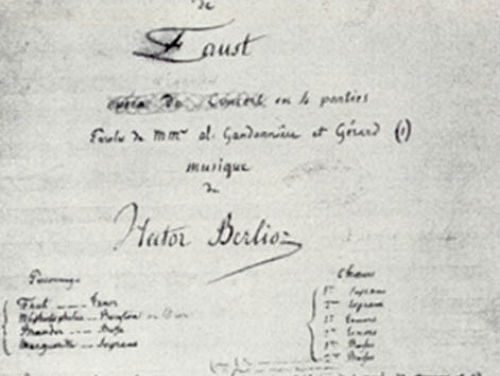 de
Faust
opéra de Concert en 4 parties
Paroles de MMrs al. Gandonnière et Gérard (1)
musique
de
Hector Berlioz
Personnages
Chœurs
Faust — Tenor
Méphistophélès — Baryton ou Basse
Brander — Basse
Marguerite — Soprano
1ers Soprani
2mes Soprani
1ers Tenors
2mes Tenors
1res Basses
2mes Basses